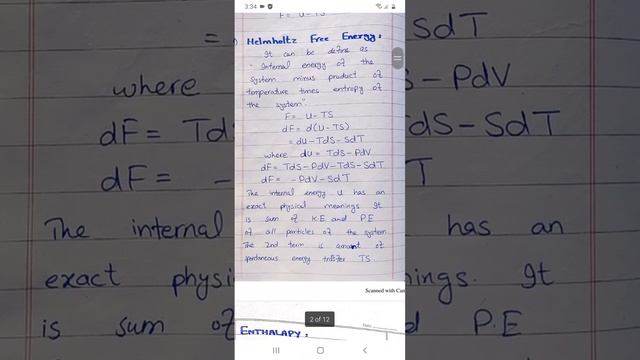 3:34
F = U - TS
Helmholtz Free Energy:
It can be define as
" Internal energy of the
system minus product of
temperature times entropy of
the system".
F = U - TS
dF = d(U - TS)
= dU - TdS - SdT
where dU = TdS - PdV
dF = TdS - PdV - TdS - SdT
dF = - PdV - SdT
The internal energy U has an
exact physical meanings It
is sum of K.E and P.E
of all particles of the system
The 2nd term is amount of
spontaneous energy TS
Scanned with Cam
2 of 12
ENTHALAPY:
Date
=
where
dF = Td
dF = -
The internal
exact physi
is sum of
SdT
S - PdV
dS - SdT
T
has an
nings. It
d P.E